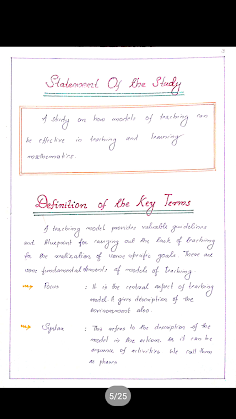 Statement Of the Study
A study on how models of teaching can
be effective in teaching and learning
mathematics.
Definition of the Key Terms
A teaching model provides valuable guidelines
and blueprint for carrying out the task of teaching
for the realization of some specific goals. There are
some fundamental elements of models of teaching
Focus : It is the central aspect of teaching
model. It gives description of the
environment also.
Syntax : This refers to the description of the
model in the action. As it can be
sequence of activities. We call them
as phases
5/25